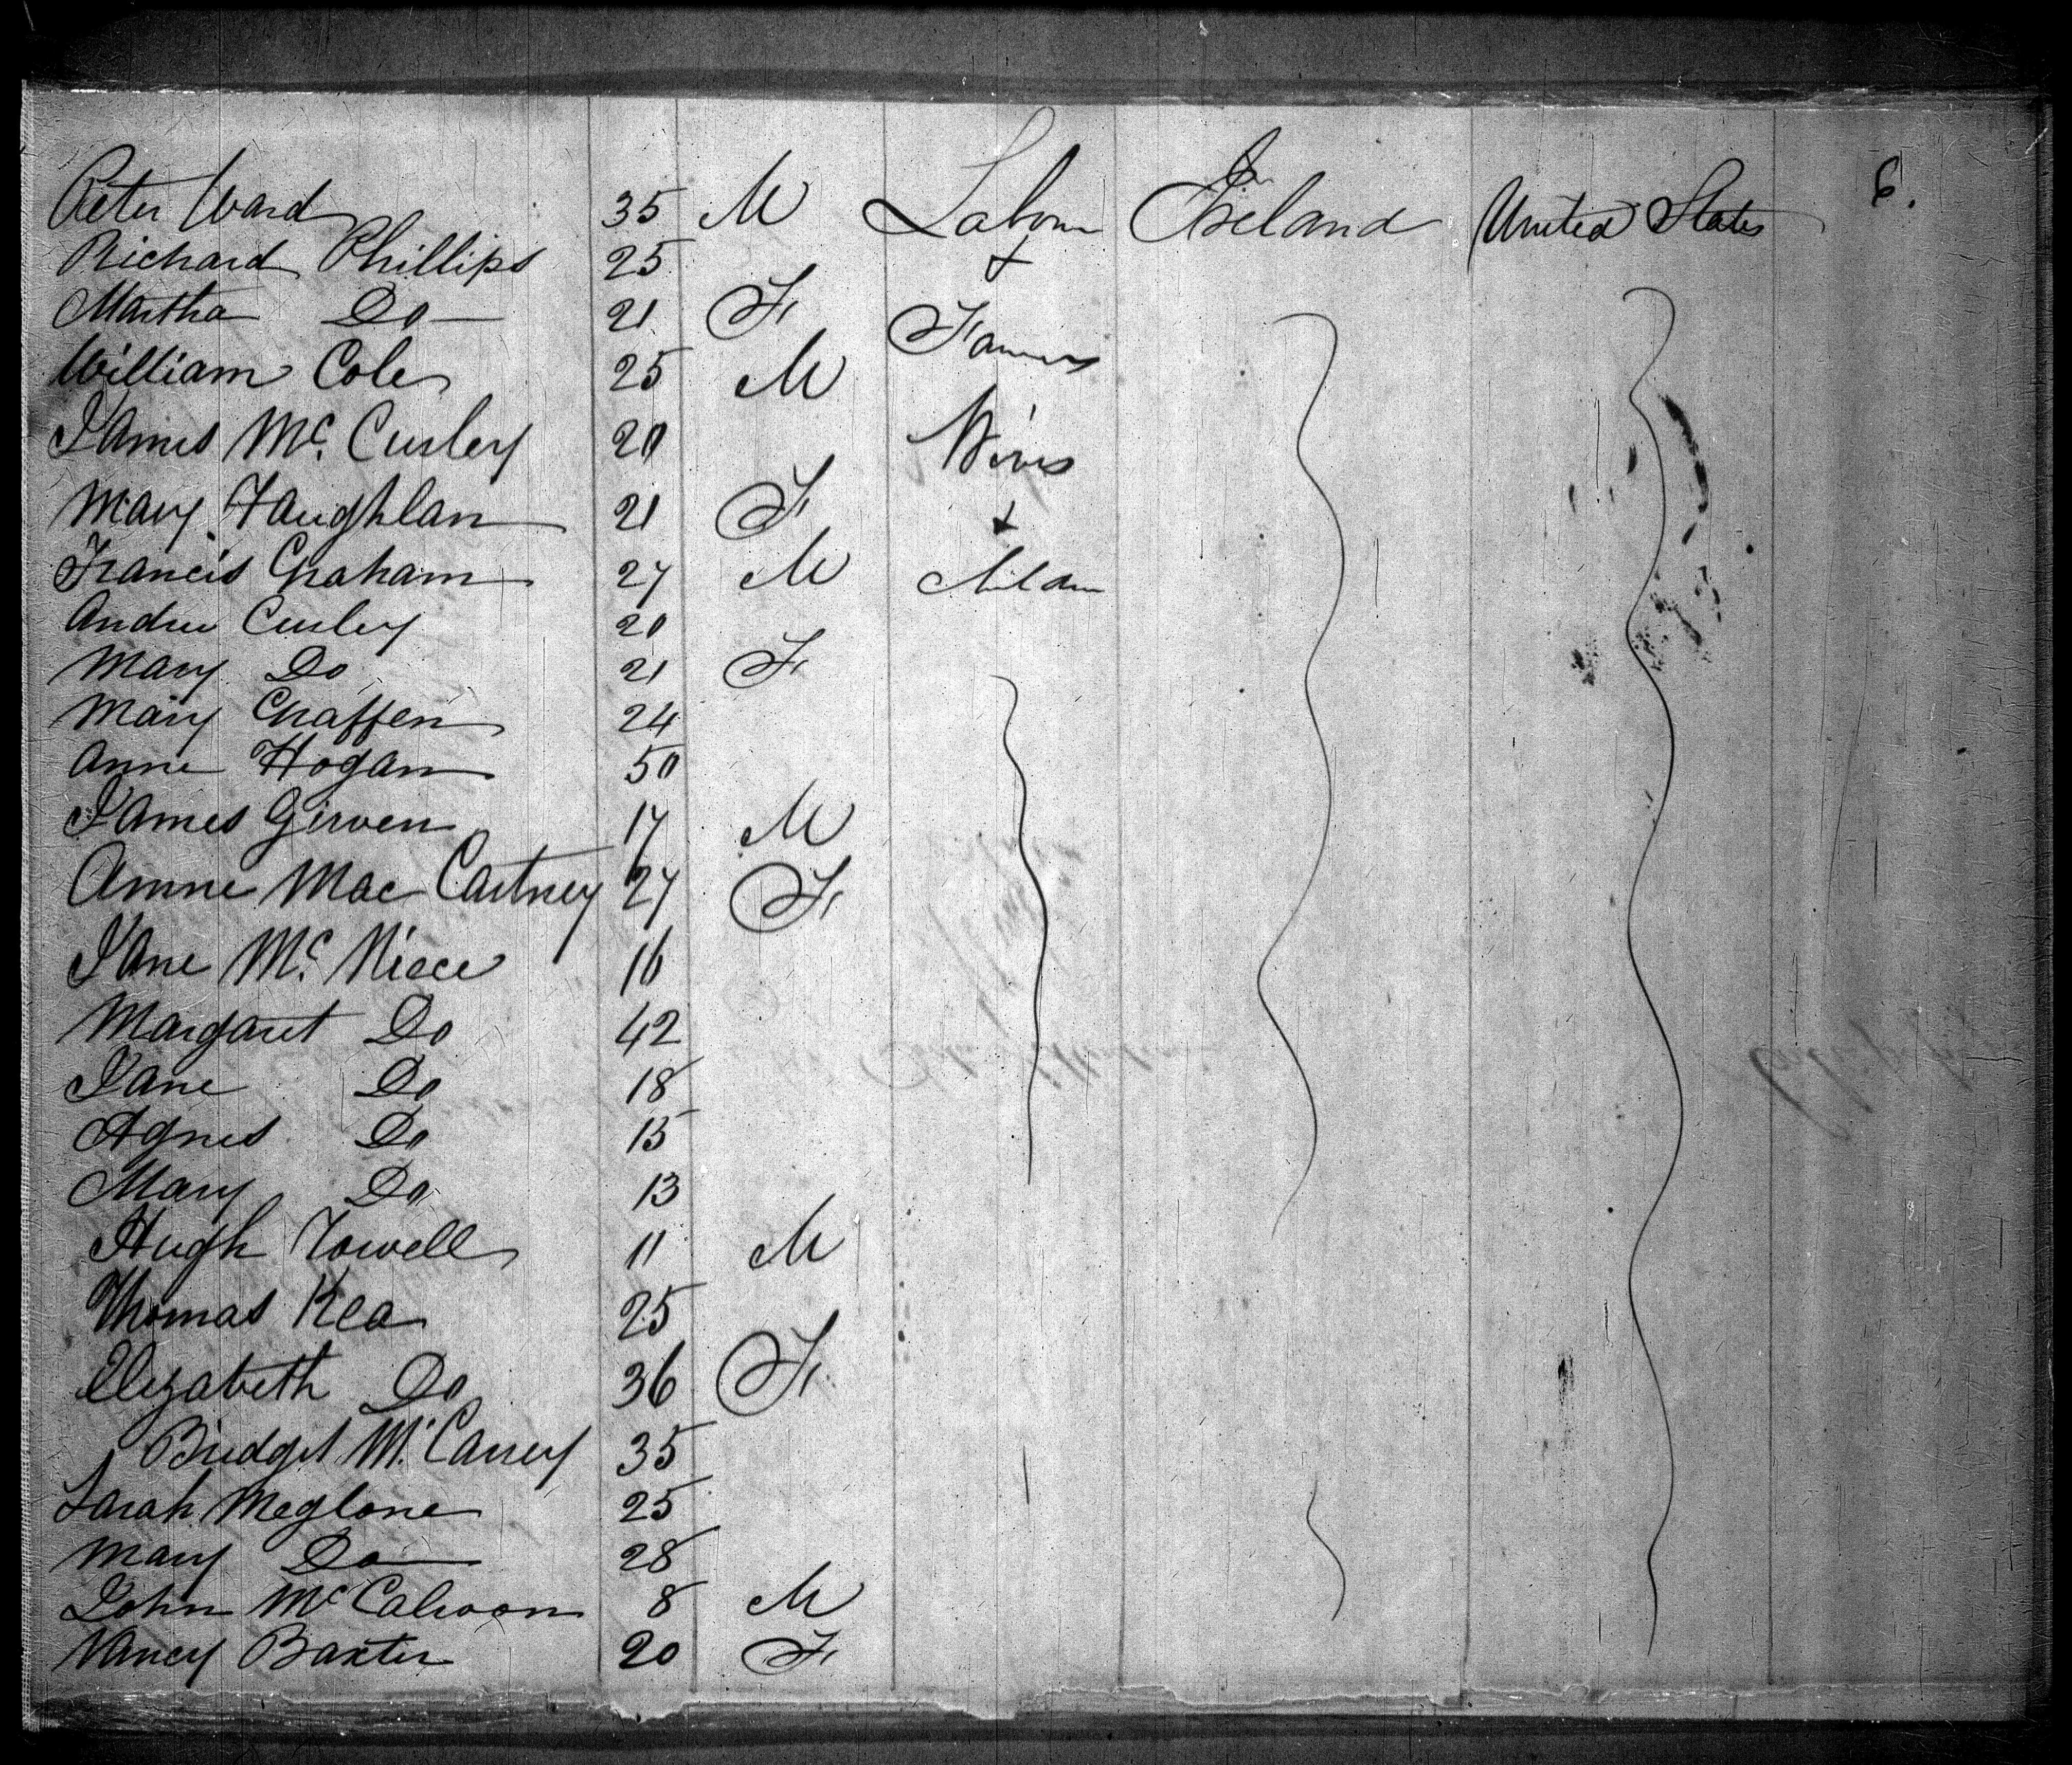 Peter Ward 35 M Labour Ireland United States 6.
Richard Phillips 25 &
Martha Do 21 F Farmers
William Cole 25 M
James Mc. Curley 20 Wives
Mary Faughlan 21 F &
Francis Graham 27 M Children
Andrew Curley 20
Mary Do 21 F
Mary Graffen 24
Anne Hogan 50
James Girven 17 M
Amne Mac Cartney 27 F
Jane Mc. Niece 16
Margaret Do 42
Jane Do 18
Agnes Do 15
Mary Do 13
Hugh Towell 11 M
Thomas Kea 25
Elizabeth Do 36 F
Bridget Mc. Carrey 35
Sarah Meglone 25
Mary Do 28
John Mc Calvoon 8 M
Nancy Baxter 20 F